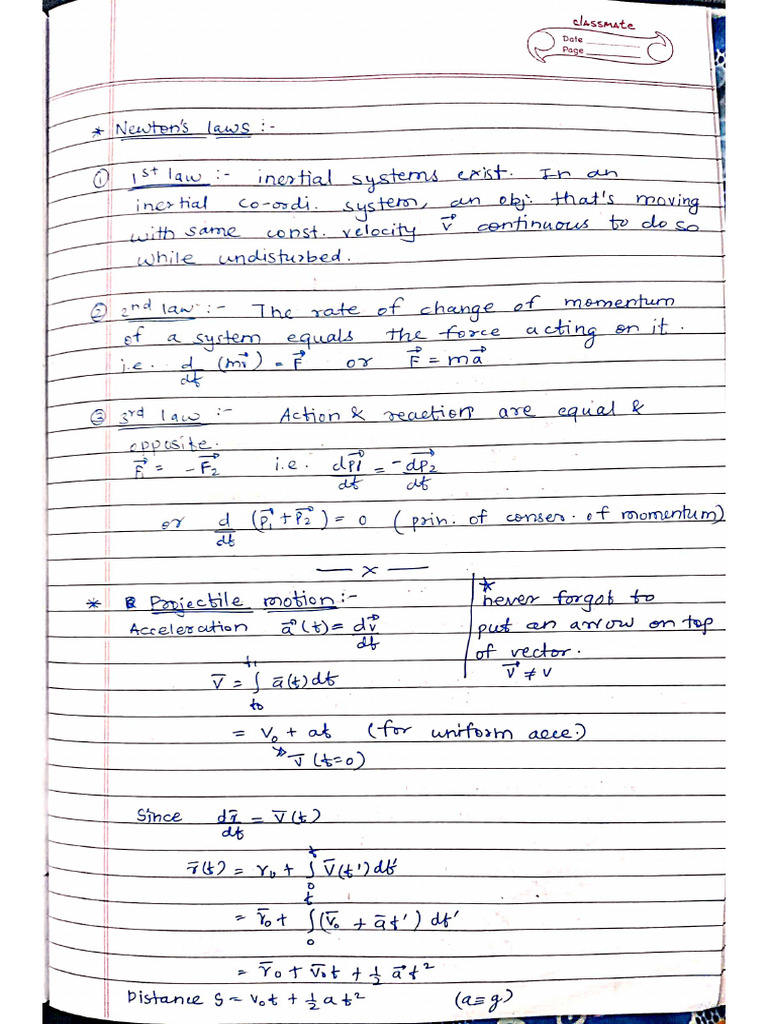 classmate
Date
Page
* Newton's laws :-
① 1st law :- inertial systems exist. In an
inertial co-ordi. system, an obj. that's moving
with same const. velocity v⃗ continuous to do so
while undisturbed.
② 2nd law :- The rate of change of momentum
of a system equals the force acting on it.
i.e. d/dt (mv⃗) = F⃗ or F⃗ = ma⃗
③ 3rd law :- Action & reaction are equal &
opposite.
F⃗₁ = -F⃗₂ i.e. dp⃗₁/dt = -dp⃗₂/dt
or d/dt (p⃗₁ + p⃗₂) = 0 (prin. of conser. of momentum)
— x —
* Projectile motion :-
Acceleration a⃗(t) = dv⃗/dt
* never forgot to
put an arrow on top
of vector.
v⃗ ≠ v
v̅ = ∫_{t₀}^{t₁} a̅(t) dt
= v₀ + at (for uniform acce.)
v̅(t=0)
Since dr̅/dt = v̅(t)
r̅(t) = r₀ + ∫₀ᵗ v̅(t') dt'
= r̅₀ + ∫₀ᵗ (v̅₀ + a̅t') dt'
= r̅₀ + v̅₀t + ½ a⃗t²
Distance S = v₀t + ½ at² (a = g)